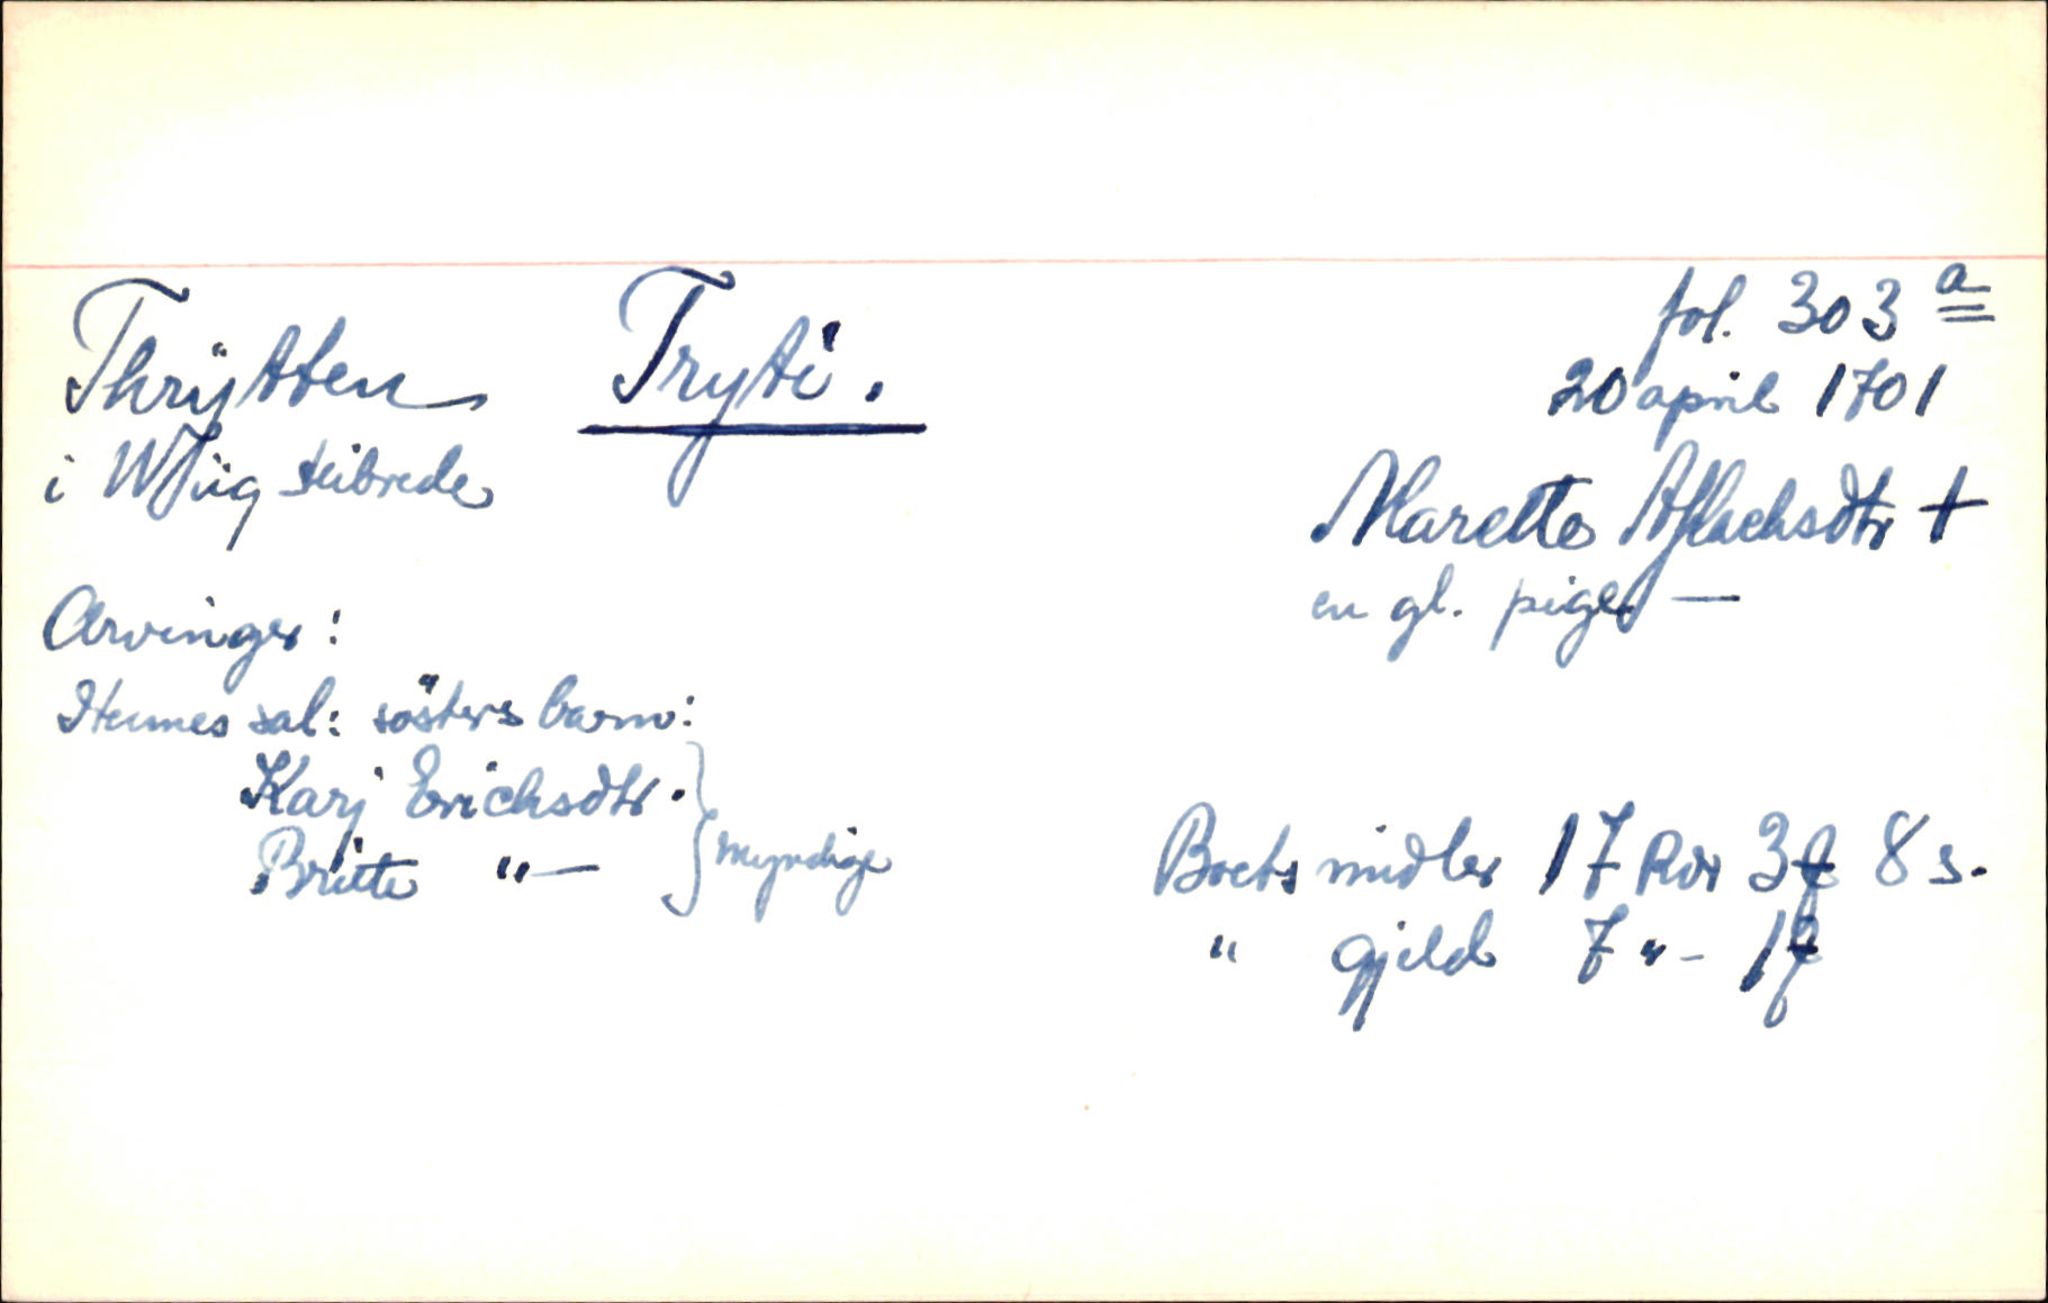 Thrÿtten Tryti.
i Wÿig skibrede
fol. 303 a
20 april 1701
Marette Aslachsdtr +
en gl. pige —
Arvinger:
Hennes sal: søsters barn:
Karj Erichsdtr.
Britte "—
} myndige
Boets midler 17 Rdr 3 ƒ 8 s.
" gjeld 7 "- 1 ƒ